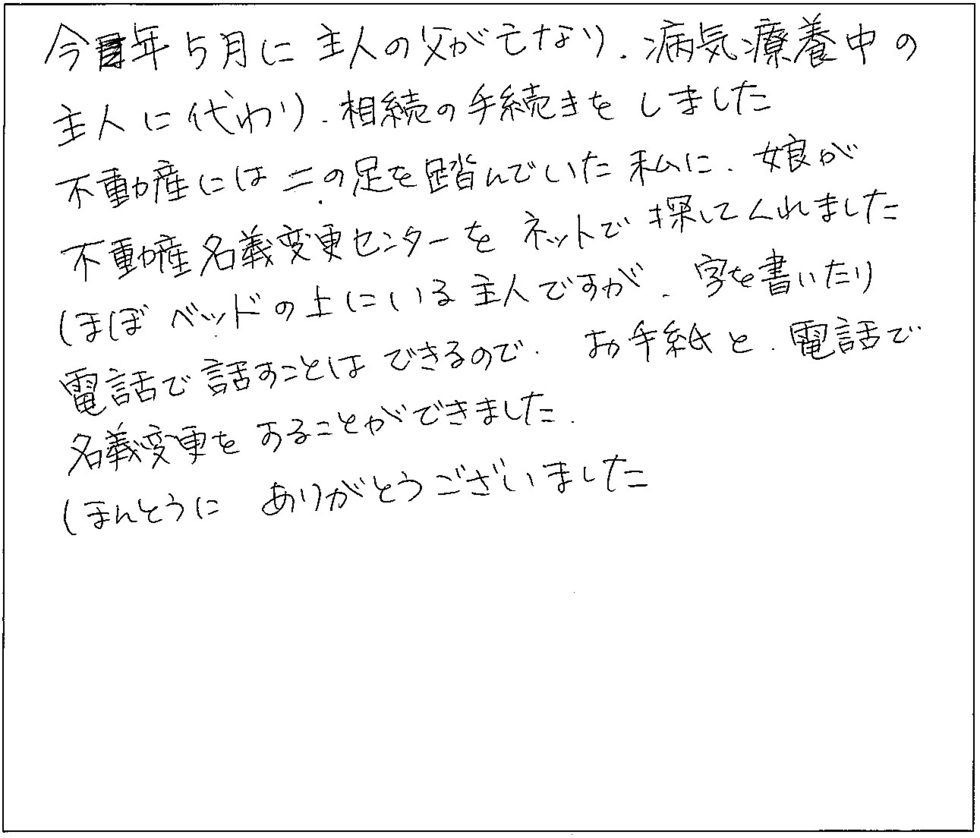 今年5月に主人の父が亡なり、病気療養中の
主人に代わり、相続の手続きをしました
不動産には二の足を踏んでいた私に、娘が
不動産名義変更センターをネットで探してくれました
ほぼベッドの上にいる主人ですが、字を書いたり
電話で話すことはできるので、お手紙と、電話で
名義変更をすることができました。
ほんとうに ありがとうございました